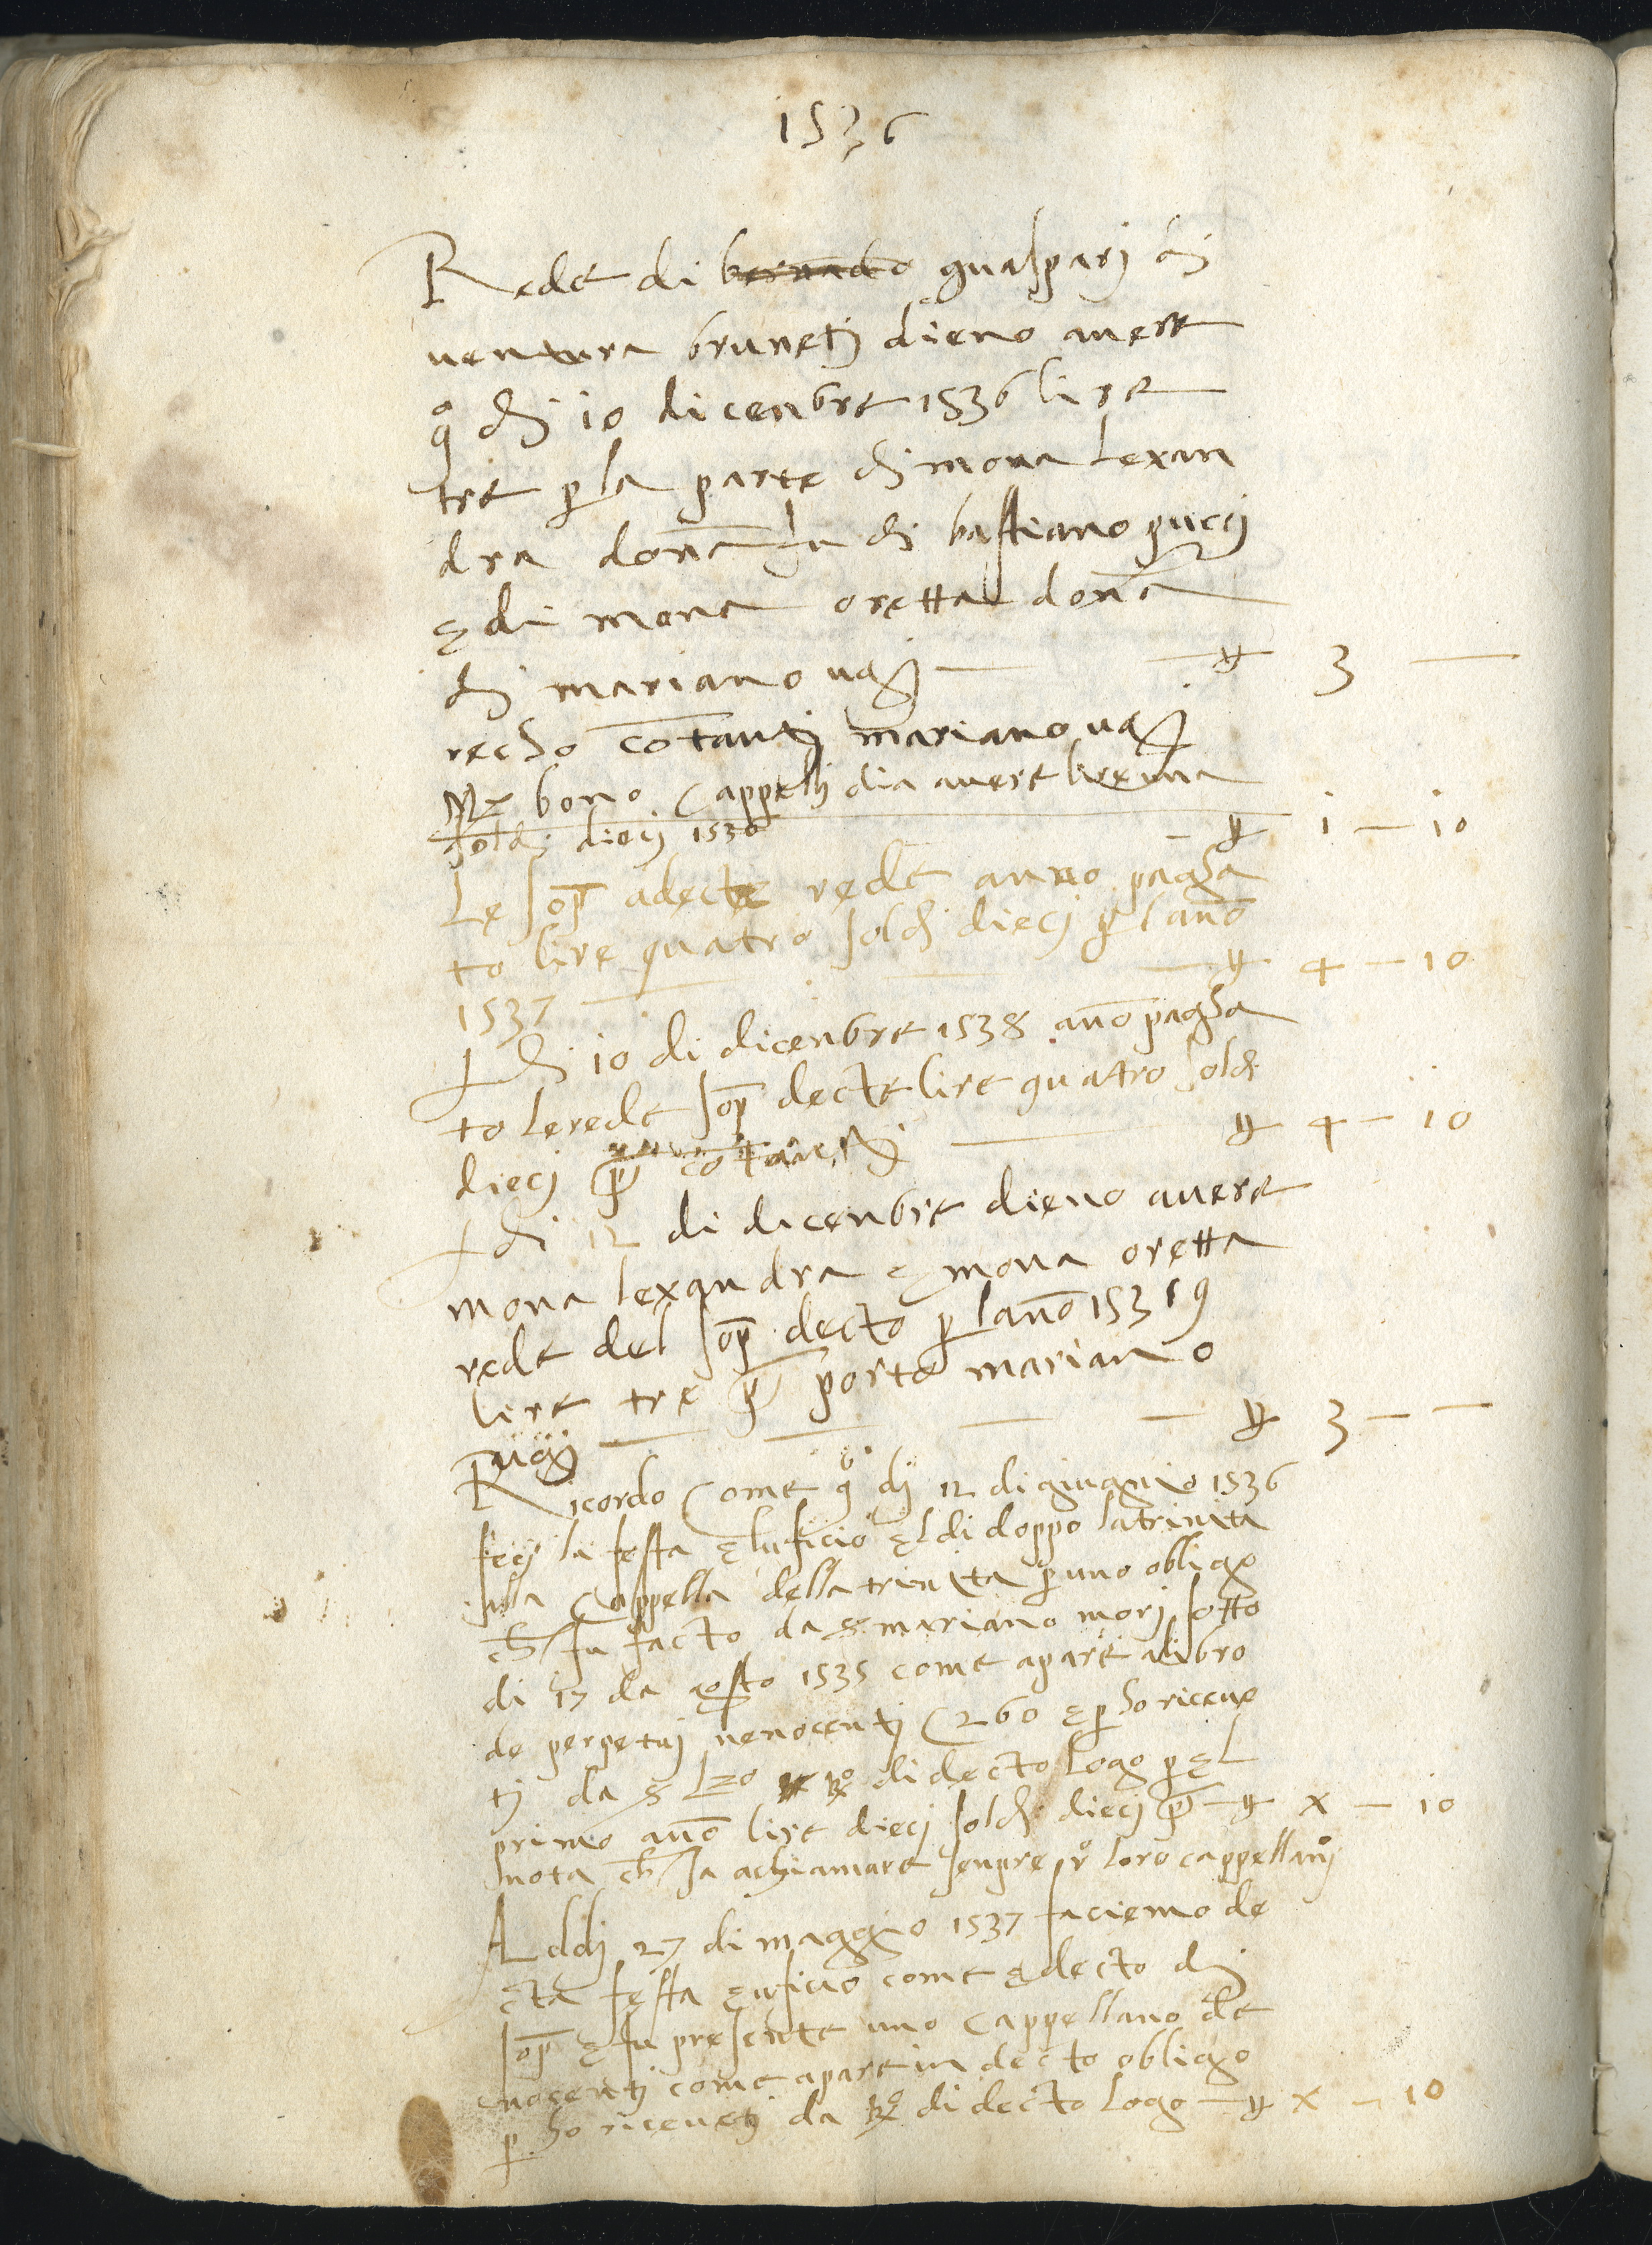 1536
Rede di bernado guaspari di
ventura bruneti dieno avere
q° di 10 dicenbre 1536 lire
tre p la parte di mona Lexan
dra dona fu di bastiano pucci
e di mona oretta dona
di mariano ugi — ₶ 3 —
recho cotanti mariano ugi
bono Cappelli dia avere lire una
soldi dieci 1536 — ₶ 1 — 10
Le sop adecte rede anno pagha
to lire quatro soldi dieci p lano
1537 — ₶ 4 — 10
A di 10 di dicenbre 1538 ano pagha
to lerede sop decte lire quatro soldi
dieci cotanti — ₶ 4 — 10
A di 12 di dicenbre dieno avere
mona lexandra e mona oretta
rede del sop decto p lano 1539
lire tre porto mariano
ugi — ₶ 3 — —
Ricordo Come q° di 12 di giugnio 1536
feci la festa e lufficio el di doppo la trinita
alla Cappella della trinita p uno obligo
ch fu facto da s mariano mori sotto
di 17 da gosto 1535 come apare alibro
de perpetui nenocenti C 260 e p ho riceuo
ti da s di decto logo p el
primo ano lire dieci soldi dieci — ₶ X — 10
nota ch sa achiamare senpre loro cappellani
Addi 27 di maggio 1537 faciemo de
cta festa e uficio come e decto di
sop e fu presente uno Cappellano de
nocenti come apare in decto obligo
p ho riceuti da di decto logo — ₶ X — 10